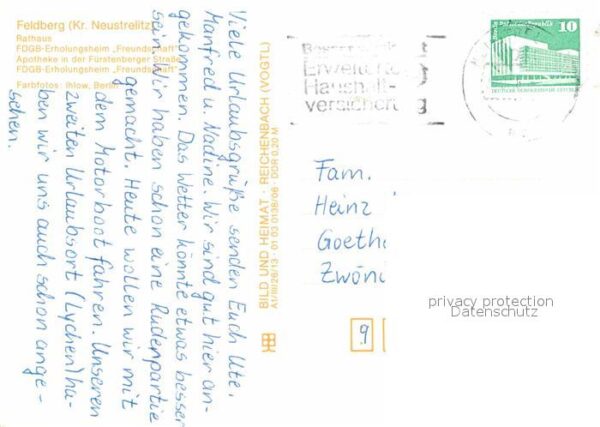 Feldberg (Kr. Neustrelitz)
Rathaus
FDGB-Erholungsheim „Freundschaft"
Apotheke in der Fürstenberger Straße
FDGB-Erholungsheim „Freundschaft"
Farbfotos: Ihlow, Berlin
Viele Urlaubsgrüße senden Euch Ute,
Manfred u. Nadine. Wir sind gut hier an-
gekommen. Das Wetter könnte etwas besser
sein. Wir haben schon eine Ruderpartie
gemacht. Heute wollen wir mit
dem Motorboot fahren. Unseren
zweiten Urlaubsort (Lychen) ha-
ben wir uns auch schon ange-
sehen.
BILD UND HEIMAT · REICHENBACH (VOGTL)
A1/III/26/13 · 01 03 0138/06 · DDR 0,20 M
Erweiterte
Haushalt-
versicherung
10
Fam.
Heinz
Goeth
Zwöni
9
privacy protection
Datenschutz